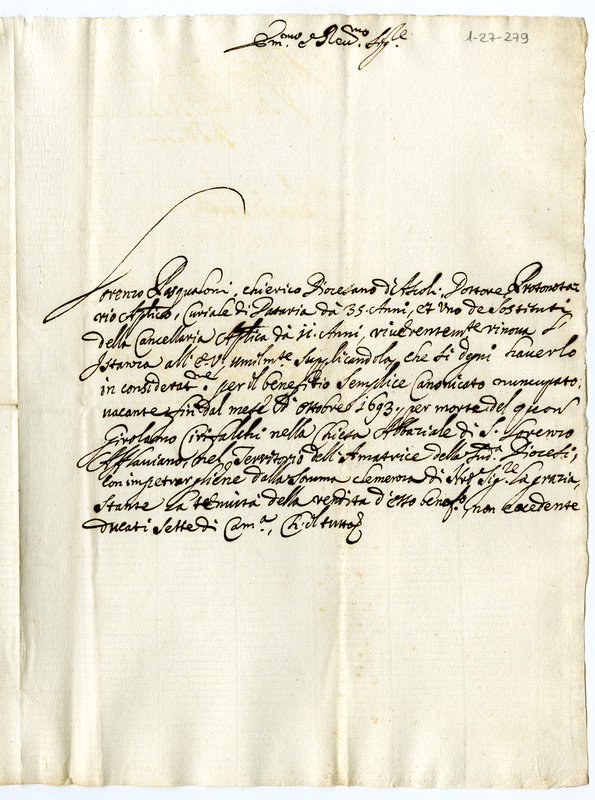 Em.mo e Rev.mo Sig.re
1-27-279
Lorenzo Pasqualoni, chierico Diocesano di Ascoli, Dottore, Protonota-
rio Aplico, Curiale di Dataria dà 35. Anni, et Uno de Sostituti
della Cancellaria Aplica dà 11. Anni, riverentem.te rinova l'
Istanza all' E.V. umilm.te supplicandola, che si degni haverlo
in considerat.ne per il benefitio semplice Canonicato nuncupato,
vacante fin dal mese di Ottobre 1693, per morte del quon
Girolamo Cirifalchi nella Chiesa Abbaziale di S. Lorenzo
e Flaviano, nel Territorio dell'Amatrice della sud.a Diocesi,
con impetrargliene dalla somma clemenza di N.ro Sig.re la grazia,
stante la tenuità della rendita d'esso benef.o, non eccedente
ducati sette di Cam.a, Ch. il tutto